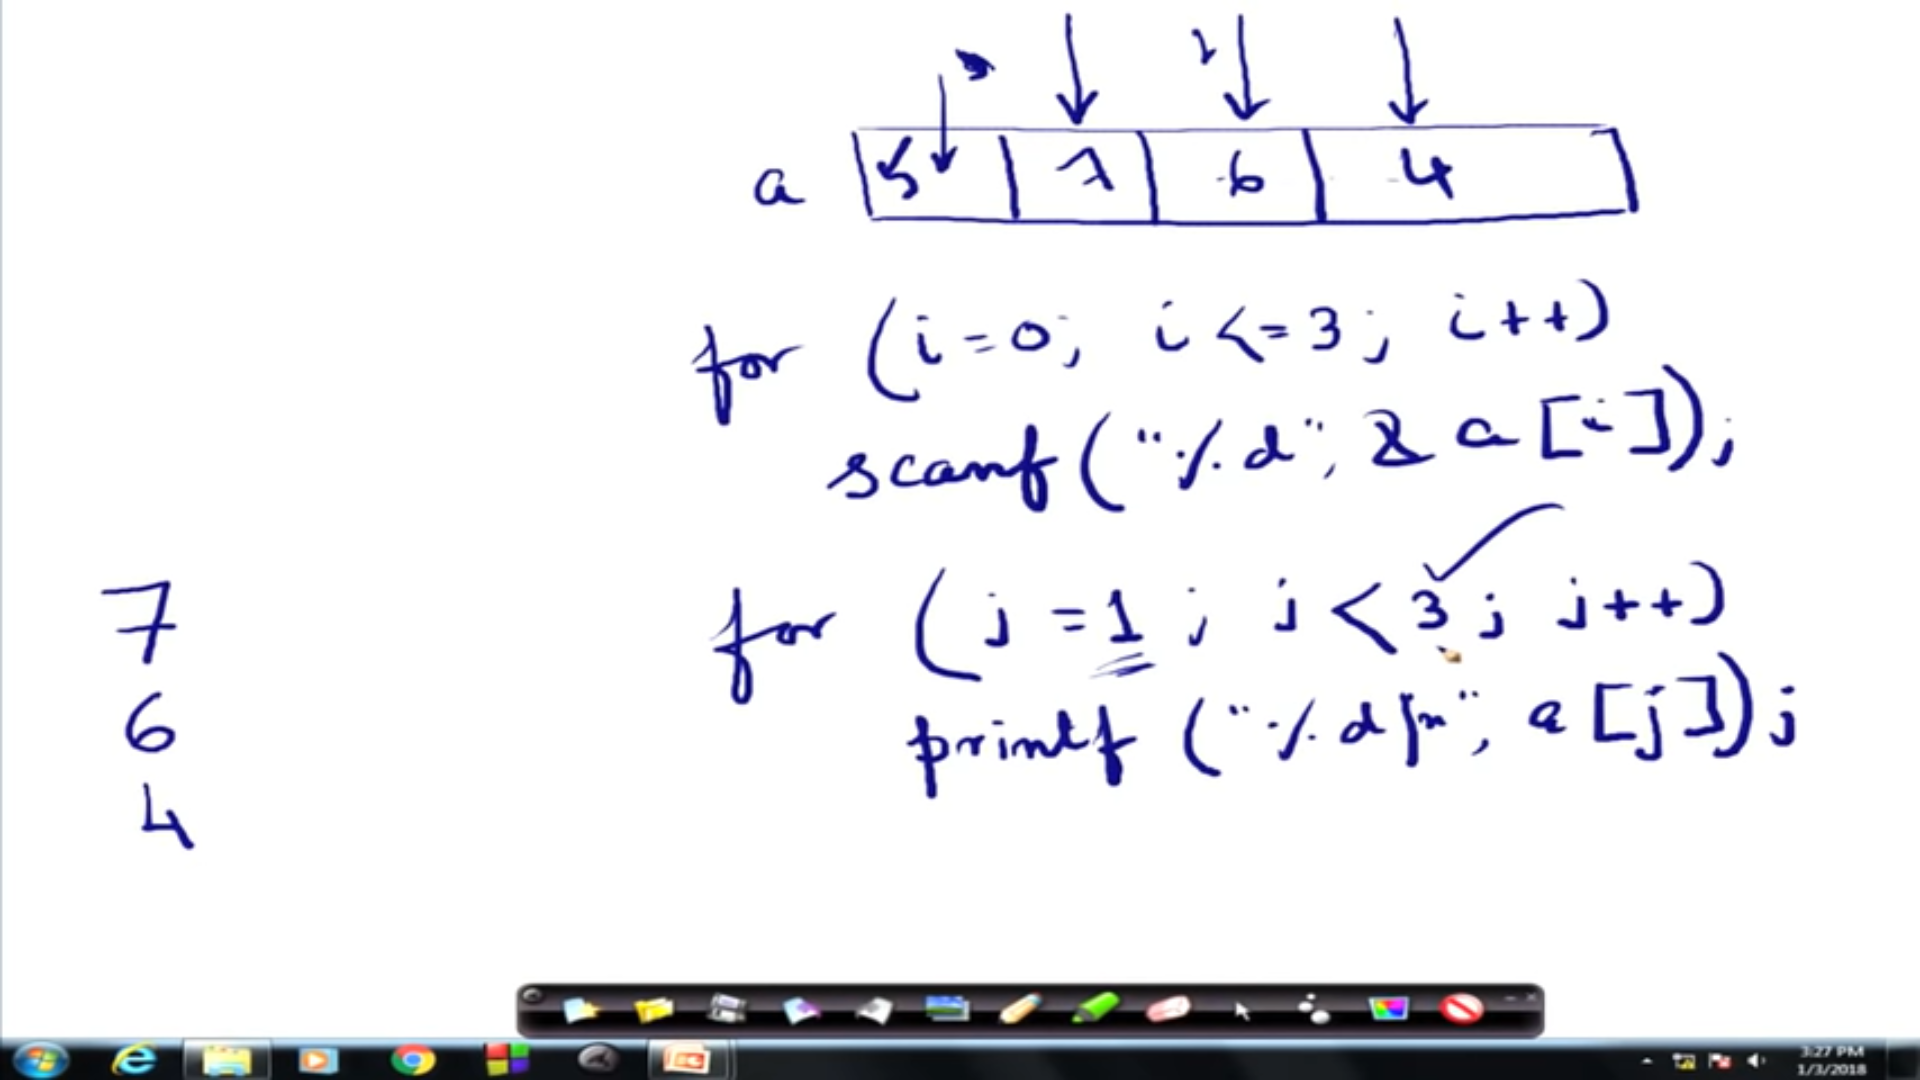 a 5 7 6 4
for (i=0; i<=3; i++)
scanf("%d", & a[i]);
for (j=1; j<3; j++)
printf ("%d\n", a[j]);
7
6
4
3:27 PM
1/3/2018